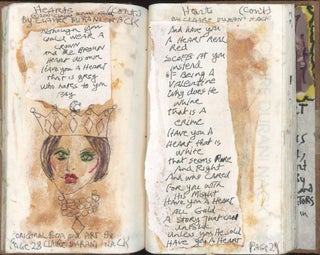 Hearts (cont.)
BY CLAIRE DURAN NACK
Although some
could wear A
crown
And the Brown
Heart
Have you A HeArt
that is grey
who hates to you
PAY
original Poem and ART BY
PAGE 28 CLAIRE DURAN NACK
Hearts (con't)
BY CLAIRE DURAN NACK
And have you
A HEART Real
Red
instead
of Being A
Valentine
why does He
whine
that is A
crime
Have you A
HEART that is
white
that seems Pure
And Right
And who cared
For you with
His Might
Have you A Heart
All Gold
A story that can
unfold
unless you
Have you A HeArt
PAGE 29